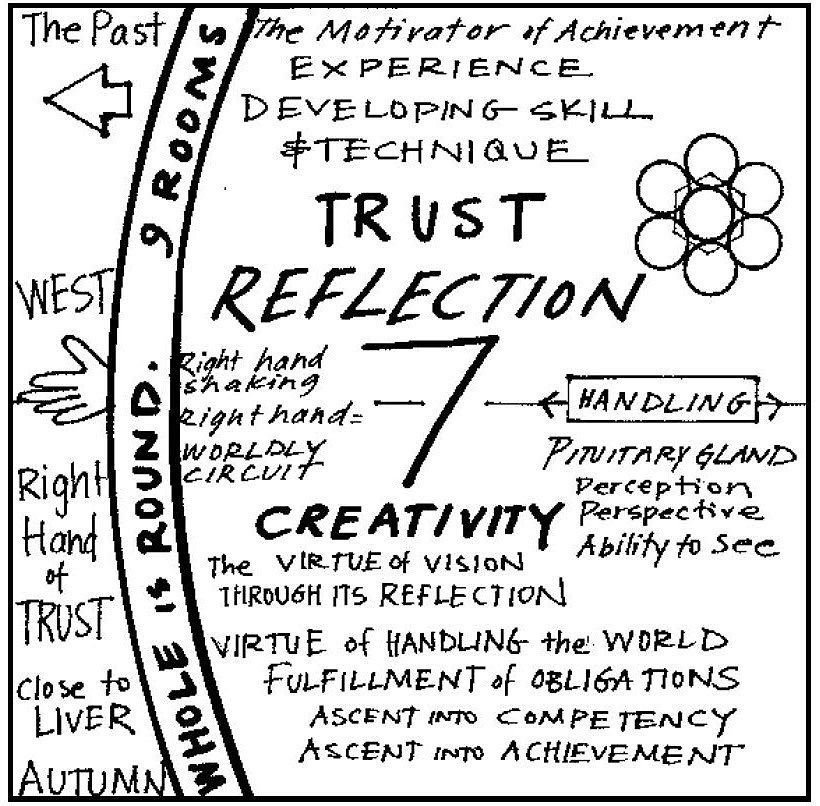 The Past
WEST
Right
Hand
of
TRUST
Close to
LIVER
AUTUMN
WHOLE is ROUND. 9 ROOMS
The Motivator of Achievement
EXPERIENCE
DEVELOPING SKILL
& TECHNIQUE
TRUST
REFLECTION
Right hand
shaking
Right hand =
WORLDLY
CIRCUIT
7
HANDLING
PITUITARY GLAND
Perception
Perspective
Ability to See
CREATIVITY
The VIRTUE of VISION
THROUGH ITS REFLECTION
VIRTUE of HANDLING the WORLD
FULFILLMENT of OBLIGATIONS
ASCENT INTO COMPETENCY
ASCENT INTO ACHIEVEMENT